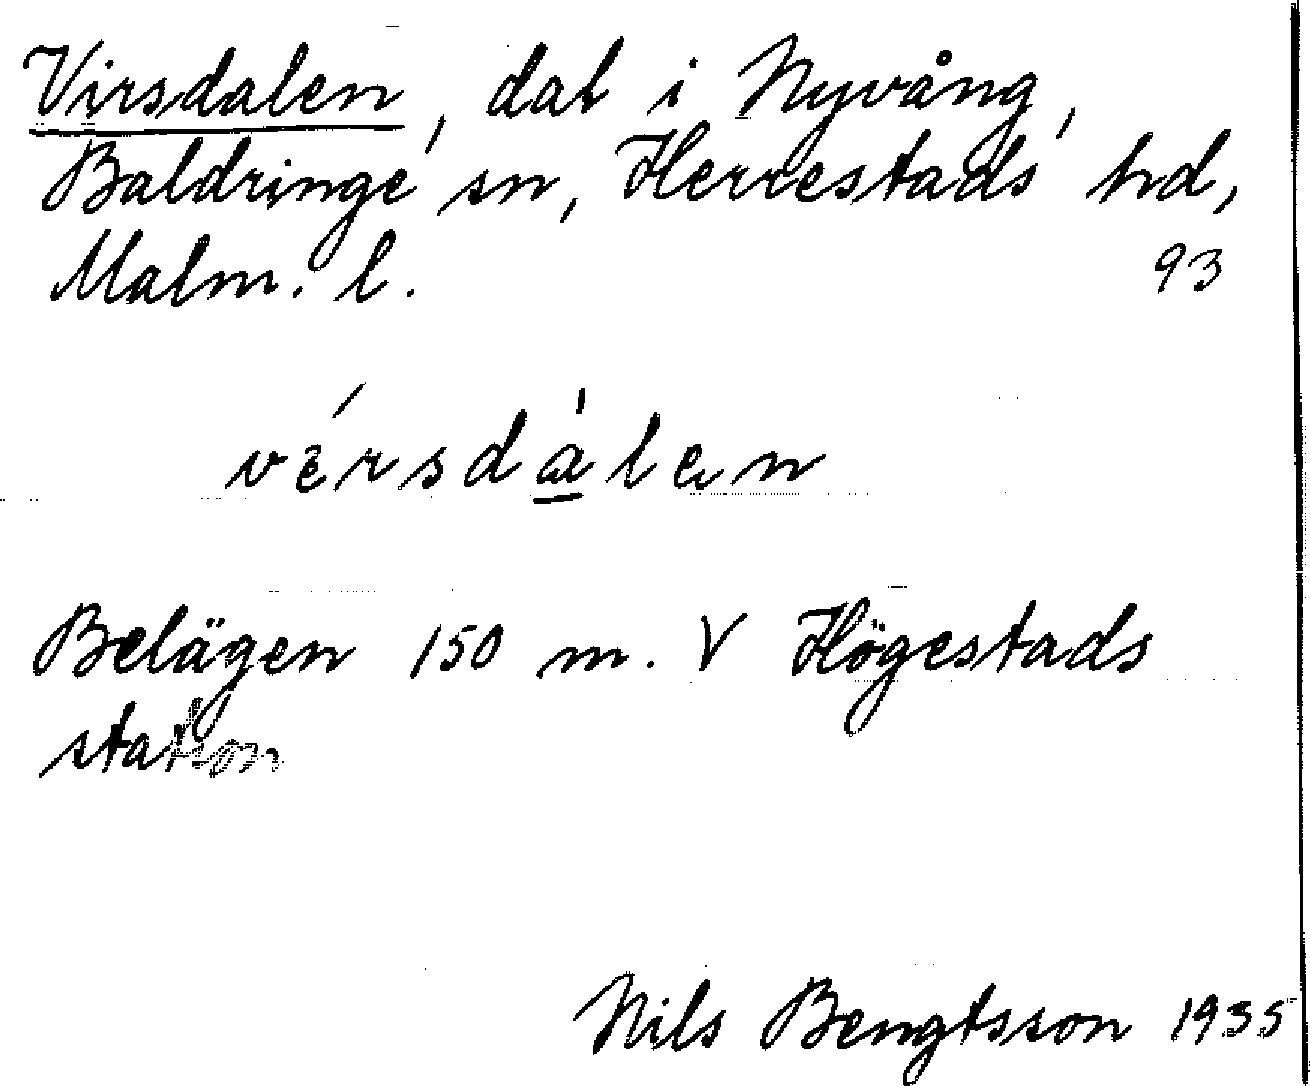 Virsdalen, dal i Nyvång,
Baldringe sn, Herrestads hd,
Malm. l. 93
vérsdálen
Belägen 150 m. V Högestads
station
Nils Bengtsson 1935